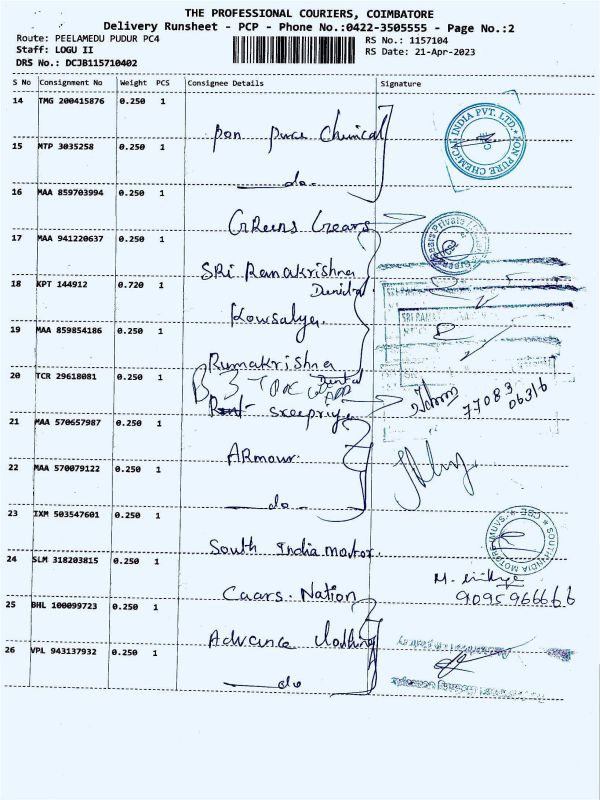 THE PROFESSIONAL COURIERS, COIMBATORE
Delivery Runsheet - PCP - Phone No.:0422-3505555 - Page No.:2
Route: PEELAMEDU PUDUR PC4
RS No.: 1157104
Staff: LOGU II
RS Date: 21-Apr-2023
DRS No.: DCJB115710402
S No Consignment No Weight PCS Consignee Details Signature
14 TMG 200415876 0.250 1
Pon Pure Chemical
15 MTP 3035258 0.250 1
do
16 MAA 859703994 0.250 1
Greens Gears
17 MAA 941220637 0.250 1
SRi Ramakrishna
Dental
18 KPT 144912 0.720 1
Kowsalya
19 MAA 859854186 0.250 1
Ramakrishna
Dental
20 TCR 29618081 0.250 1
sreepriya
77083
09319
21 MAA 570657987 0.250 1
ARmour
22 MAA 570079122 0.250 1
do
23 IXM 503547601 0.250 1
South India motor
24 SLM 318203815 0.250 1
Caars Nation
9095966666
25 BHL 100099723 0.250 1
Advance Clothing
26 VPL 943137932 0.250 1
do
PON PURE CHEMICAL INDIA PVT. LTD.
SOUTH INDIA MOTOR MUVS. CBE